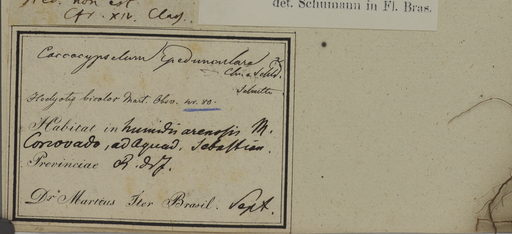 non est
Cfr. XIV. Clas.
det. Schumann in Fl. Bras.
Coccocypselum pedunculare
Ch. & Schld.
Hedyotis bicolor Mart. Obss. nr. 80.
Habitat in humidis arenosis M.
Corcovado, ad Aquad. Sebastian.
Provinciae R. d. J.
Dr. Martius Iter Brasil. Sept.